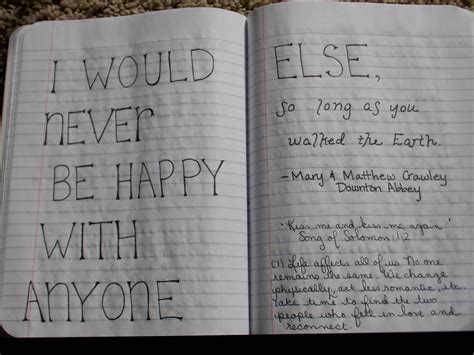 I WOULD
NEVER
BE HAPPY
WITH
ANYONE
ELSE,
so long as you
walked the Earth.
- Mary & Matthew Crawley
Downton Abbey
"Kiss me and kiss me again"
Song of Solomon 1:2
(7) Life affects all of us. No one
remains the same. We change
physically, act less romantic, etc.
Take time to find the two
people who fell in love and
reconnect.